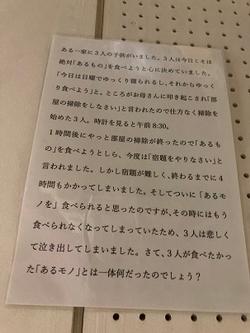 ある一家に3人の子供がいました。3人は今日こそは
絶対「あるもの」を食べようと心に決めていました。
「今日は日曜でゆっくり寝られるし、それからゆっく
り食べようよ」と。ところがお母さんに叩き起こされ「部
屋の掃除をしなさい」と言われたので仕方なく掃除を
始めた3人。時計を見ると午前 8:30。
1時間後にやっと部屋の掃除が終ったので「あるも
の」を食べようとしら、今度は「宿題をやりなさい」と
言われました。しかし宿題が難しく、終わるまでに4
時間もかかってしまいました。そしてついに「あるモ
ノを」食べられると思ったのですが、その時にはもう
食べられなくなってしまっていたため、3人は悲しく
て泣き出してしまいました。さて、3人が食べたかっ
た「あるモノ」とは一体何だったのでしょう？